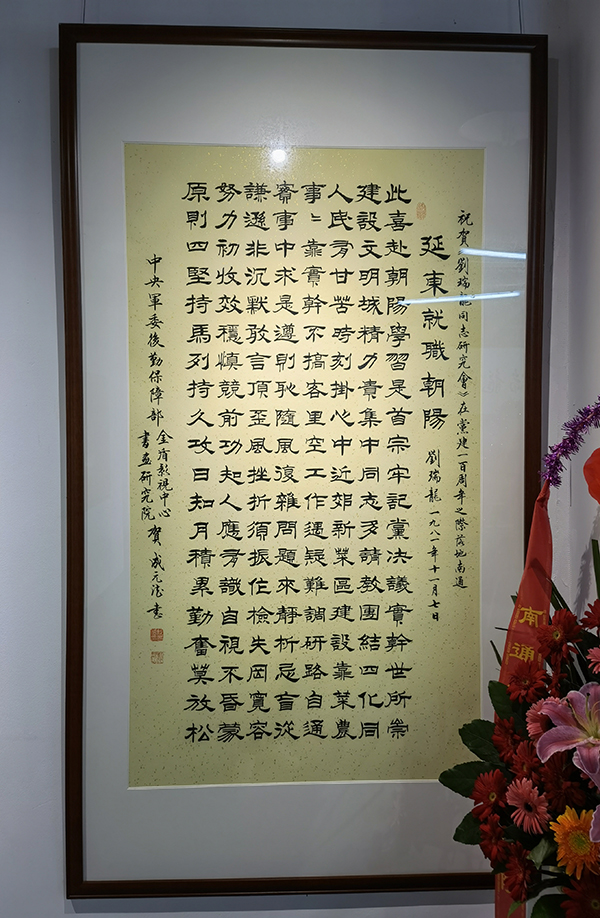 祝賀《劉瑞龍同志研究會》在黨建一百周年之際落地南通
延東就職朝陽 劉瑞龍 一九八一年十一月七日
此喜赴朝陽學習是首宗牢記黨決議實幹世所崇
建設文明城精力責集中同志多請教團結四化同
人民有甘苦時刻掛心中近郊新菜區建設靠菜農
事〻靠實幹不搞客里空工作遇疑難調研路自通
實事中求是遵則恥隨風復雜問題來靜析忌盲從
謙遜非沉默敢言頂歪風挫折須振作檢失罔寬容
努力初收效穩慎競前功知人應有識自視不昏蒙
原則四堅持馬列持久攻日知月積累勤奮莫放松
中央軍委後勤保障部
金盾影視中心
書畫研究院
賀 元 書
南通